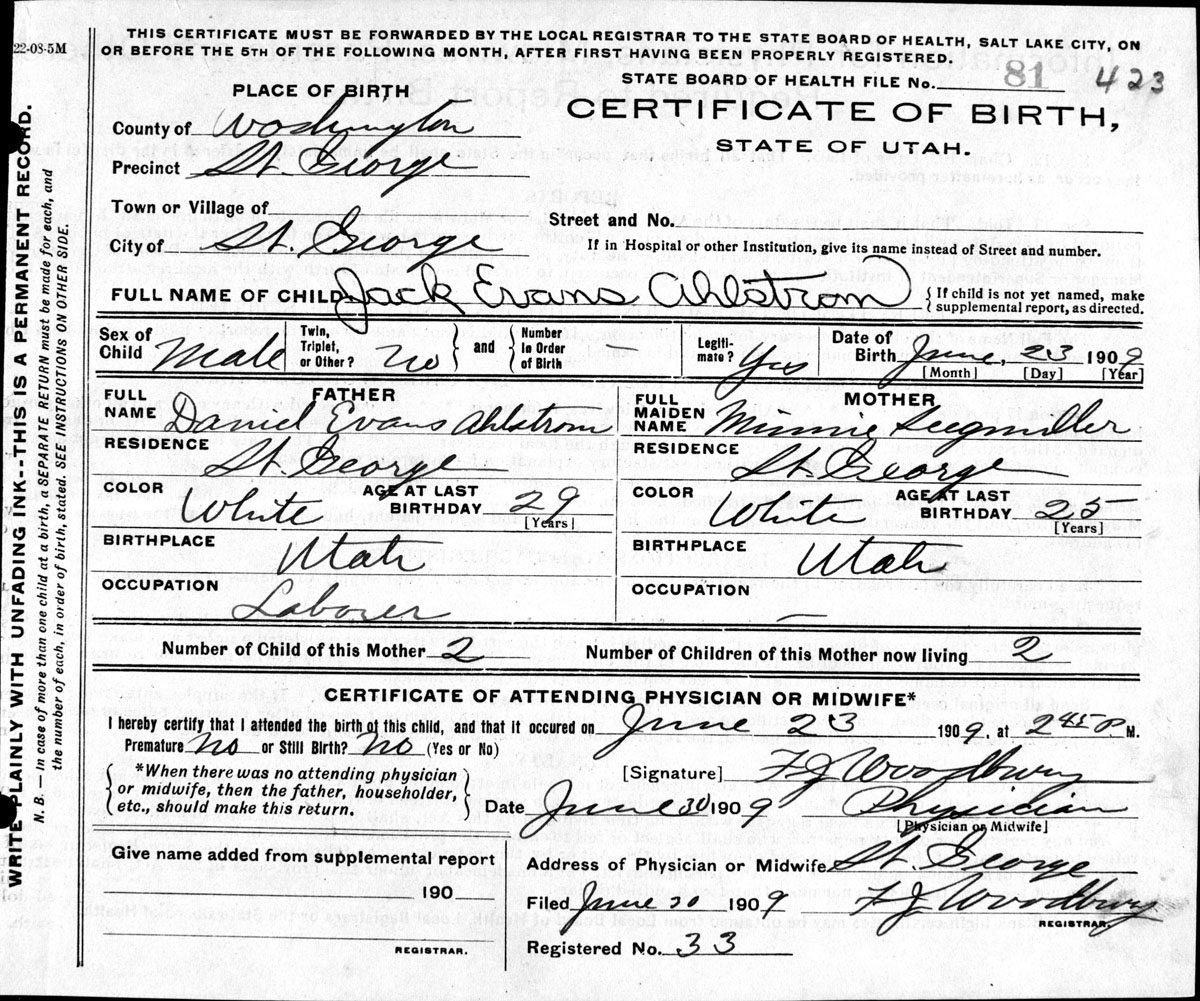 22-08-5M
THIS CERTIFICATE MUST BE FORWARDED BY THE LOCAL REGISTRAR TO THE STATE BOARD OF HEALTH, SALT LAKE CITY, ON
OR BEFORE THE 5TH OF THE FOLLOWING MONTH, AFTER FIRST HAVING BEEN PROPERLY REGISTERED.
STATE BOARD OF HEALTH FILE No. 81 423
PLACE OF BIRTH
CERTIFICATE OF BIRTH,
STATE OF UTAH.
County of Washington
Precinct St. George
Town or Village of
City of St. George
Street and No.
If in Hospital or other Institution, give its name instead of Street and number.
FULL NAME OF CHILD Jack Evans Ahlstrom { If child is not yet named, make
supplemental report, as directed.
Sex of Child Male Twin, Triplet, or Other? No } and { Number In Order of Birth Legiti-mate? Yes Date of Birth June, 23 1909
[Month] [Day] [Year]
FATHER
FULL NAME Daniel Evans Ahlstrom
RESIDENCE St George
COLOR White AGE AT LAST BIRTHDAY 29
[Years]
BIRTHPLACE Utah
OCCUPATION Laborer
MOTHER
FULL MAIDEN NAME Minnie Seegmiller
RESIDENCE St George
COLOR White AGE AT LAST BIRTHDAY 25
[Years]
BIRTHPLACE Utah
OCCUPATION —
Number of Child of this Mother 2 Number of Children of this Mother now living 2
CERTIFICATE OF ATTENDING PHYSICIAN OR MIDWIFE*
I hereby certify that I attended the birth of this child, and that it occured on June 23 1909, at 2 45 P M.
Premature No or Still Birth? No (Yes or No)
*When there was no attending physician
or midwife, then the father, householder,
etc., should make this return.
[Signature] F J Woodbury
Date June 30 1909 Physician
[Physician or Midwife]
Give name added from supplemental report
190
REGISTRAR.
Address of Physician or Midwife St. George
Filed June 30 1909 F J Woodbury
REGISTRAR.
Registered No. 33
WRITE PLAINLY WITH UNFADING INK--THIS IS A PERMANENT RECORD.
N. B.—In case of more than one child at a birth, a SEPARATE RETURN must be made for each, and
the number of each, in order of birth, stated. SEE INSTRUCTIONS ON OTHER SIDE.